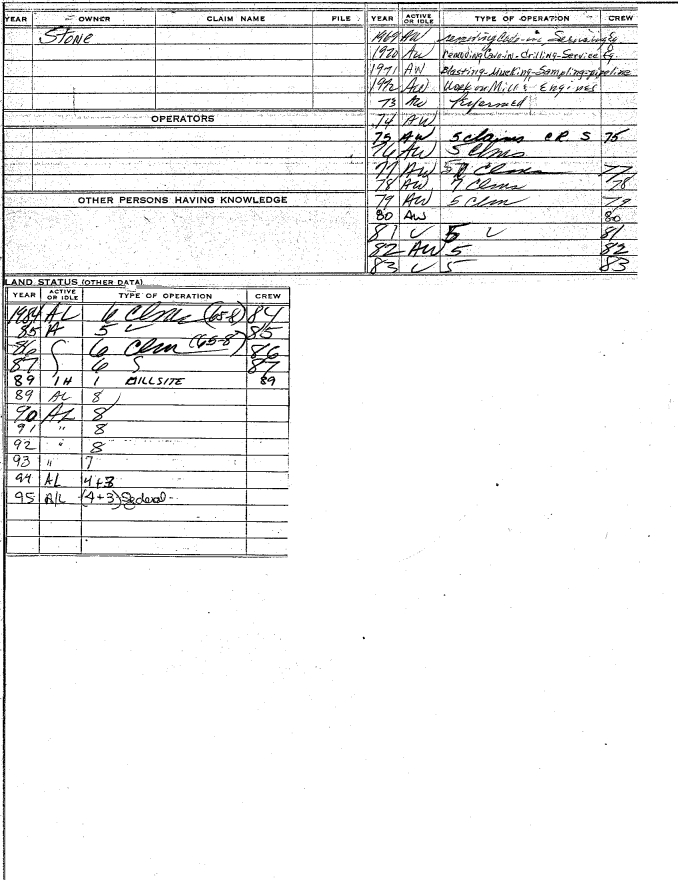 YEAR OWNER CLAIM NAME FILE
Stone
OPERATORS
OTHER PERSONS HAVING KNOWLEDGE
YEAR ACTIVE OR IDLE TYPE OF OPERATION CREW
1969 AW Servicing Eq
1970 AW Cave-in-drilling-Service Eq.
1971 AW Blasting-Mucking-Sampling-pipeline
1972 AW Work on Mill & Engines
73
74 AW
75 AW 5 claims 75
76 AW 5 Clms
77 AW 5 Clms 77
78 AW 7 Clms 78
79 AW 5 Clm 79
80 AW 80
81 5 81
82 AW 5 82
83 5 83
LAND STATUS (OTHER DATA)
YEAR ACTIVE OR IDLE TYPE OF OPERATION CREW
1984 AL 6 Clms (65-8) 84
85 A 5 85
86 6 Clm (65-8) 86
87 6 87
89 1H 1 MILLSITE 89
89 AL 8
90 AL 8
91 " 8
92 " 8
93 " 7
94 AL 4+3
95 A/L (4+3) Federal-